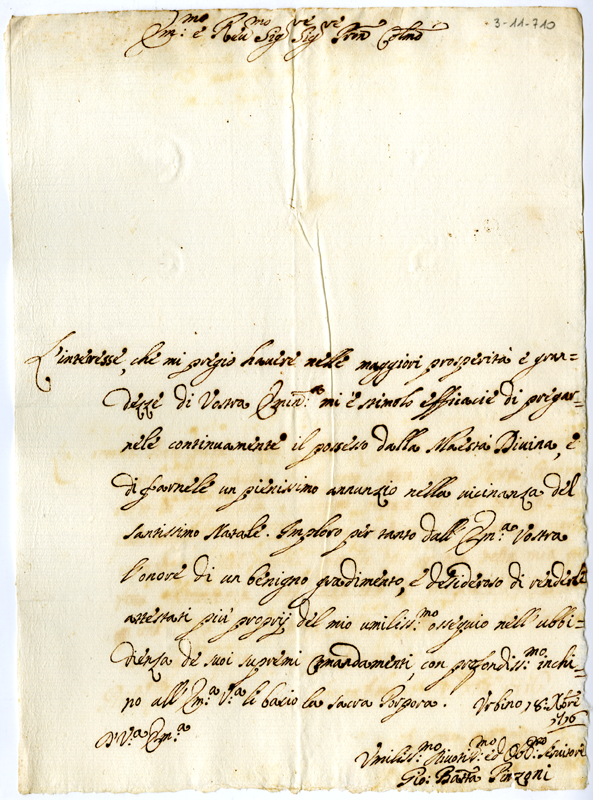 · 3-11-710
Em:mo e Reu:mo Sig:re Sig:re Pron Colmo
L'interesse, che mi pregio hauere nelle maggiori prosperità e gran=
dezze di Vostra Emin:a mi è stimolo efficacie di pregar=
nele continuamente il possesso dalla Maestà Diuina, e
di farnele un pienissimo annunzio nella uicinanza del
santissimo Natale. Imploro per tanto dall' Em:a Vostra
l'onore di un benigno gradimento, e desideroso di renderle
attestati più proprij del mio umiliss:mo ossequio nell' ubbi=
dienza de suoi supremi comandamenti, con profondiss:mo inchi=
no all' Em:a V:a li bacio la sacra Porpora. Urbino 18: Xbre
1716
D V:a Em:a
Umiliss:mo Diuotis:mo ed Obb:mo Seruitore
Gio: Batta Pinzoni